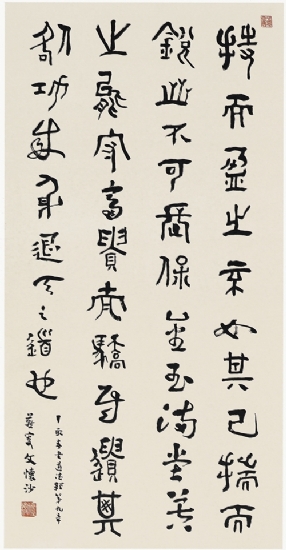 持而盈之不如其已揣而
銳之不可長保金玉滿堂莫
之能守富貴而驕自遺其
咎功成身退天之道也
道德經第九章
燕叟文懷沙